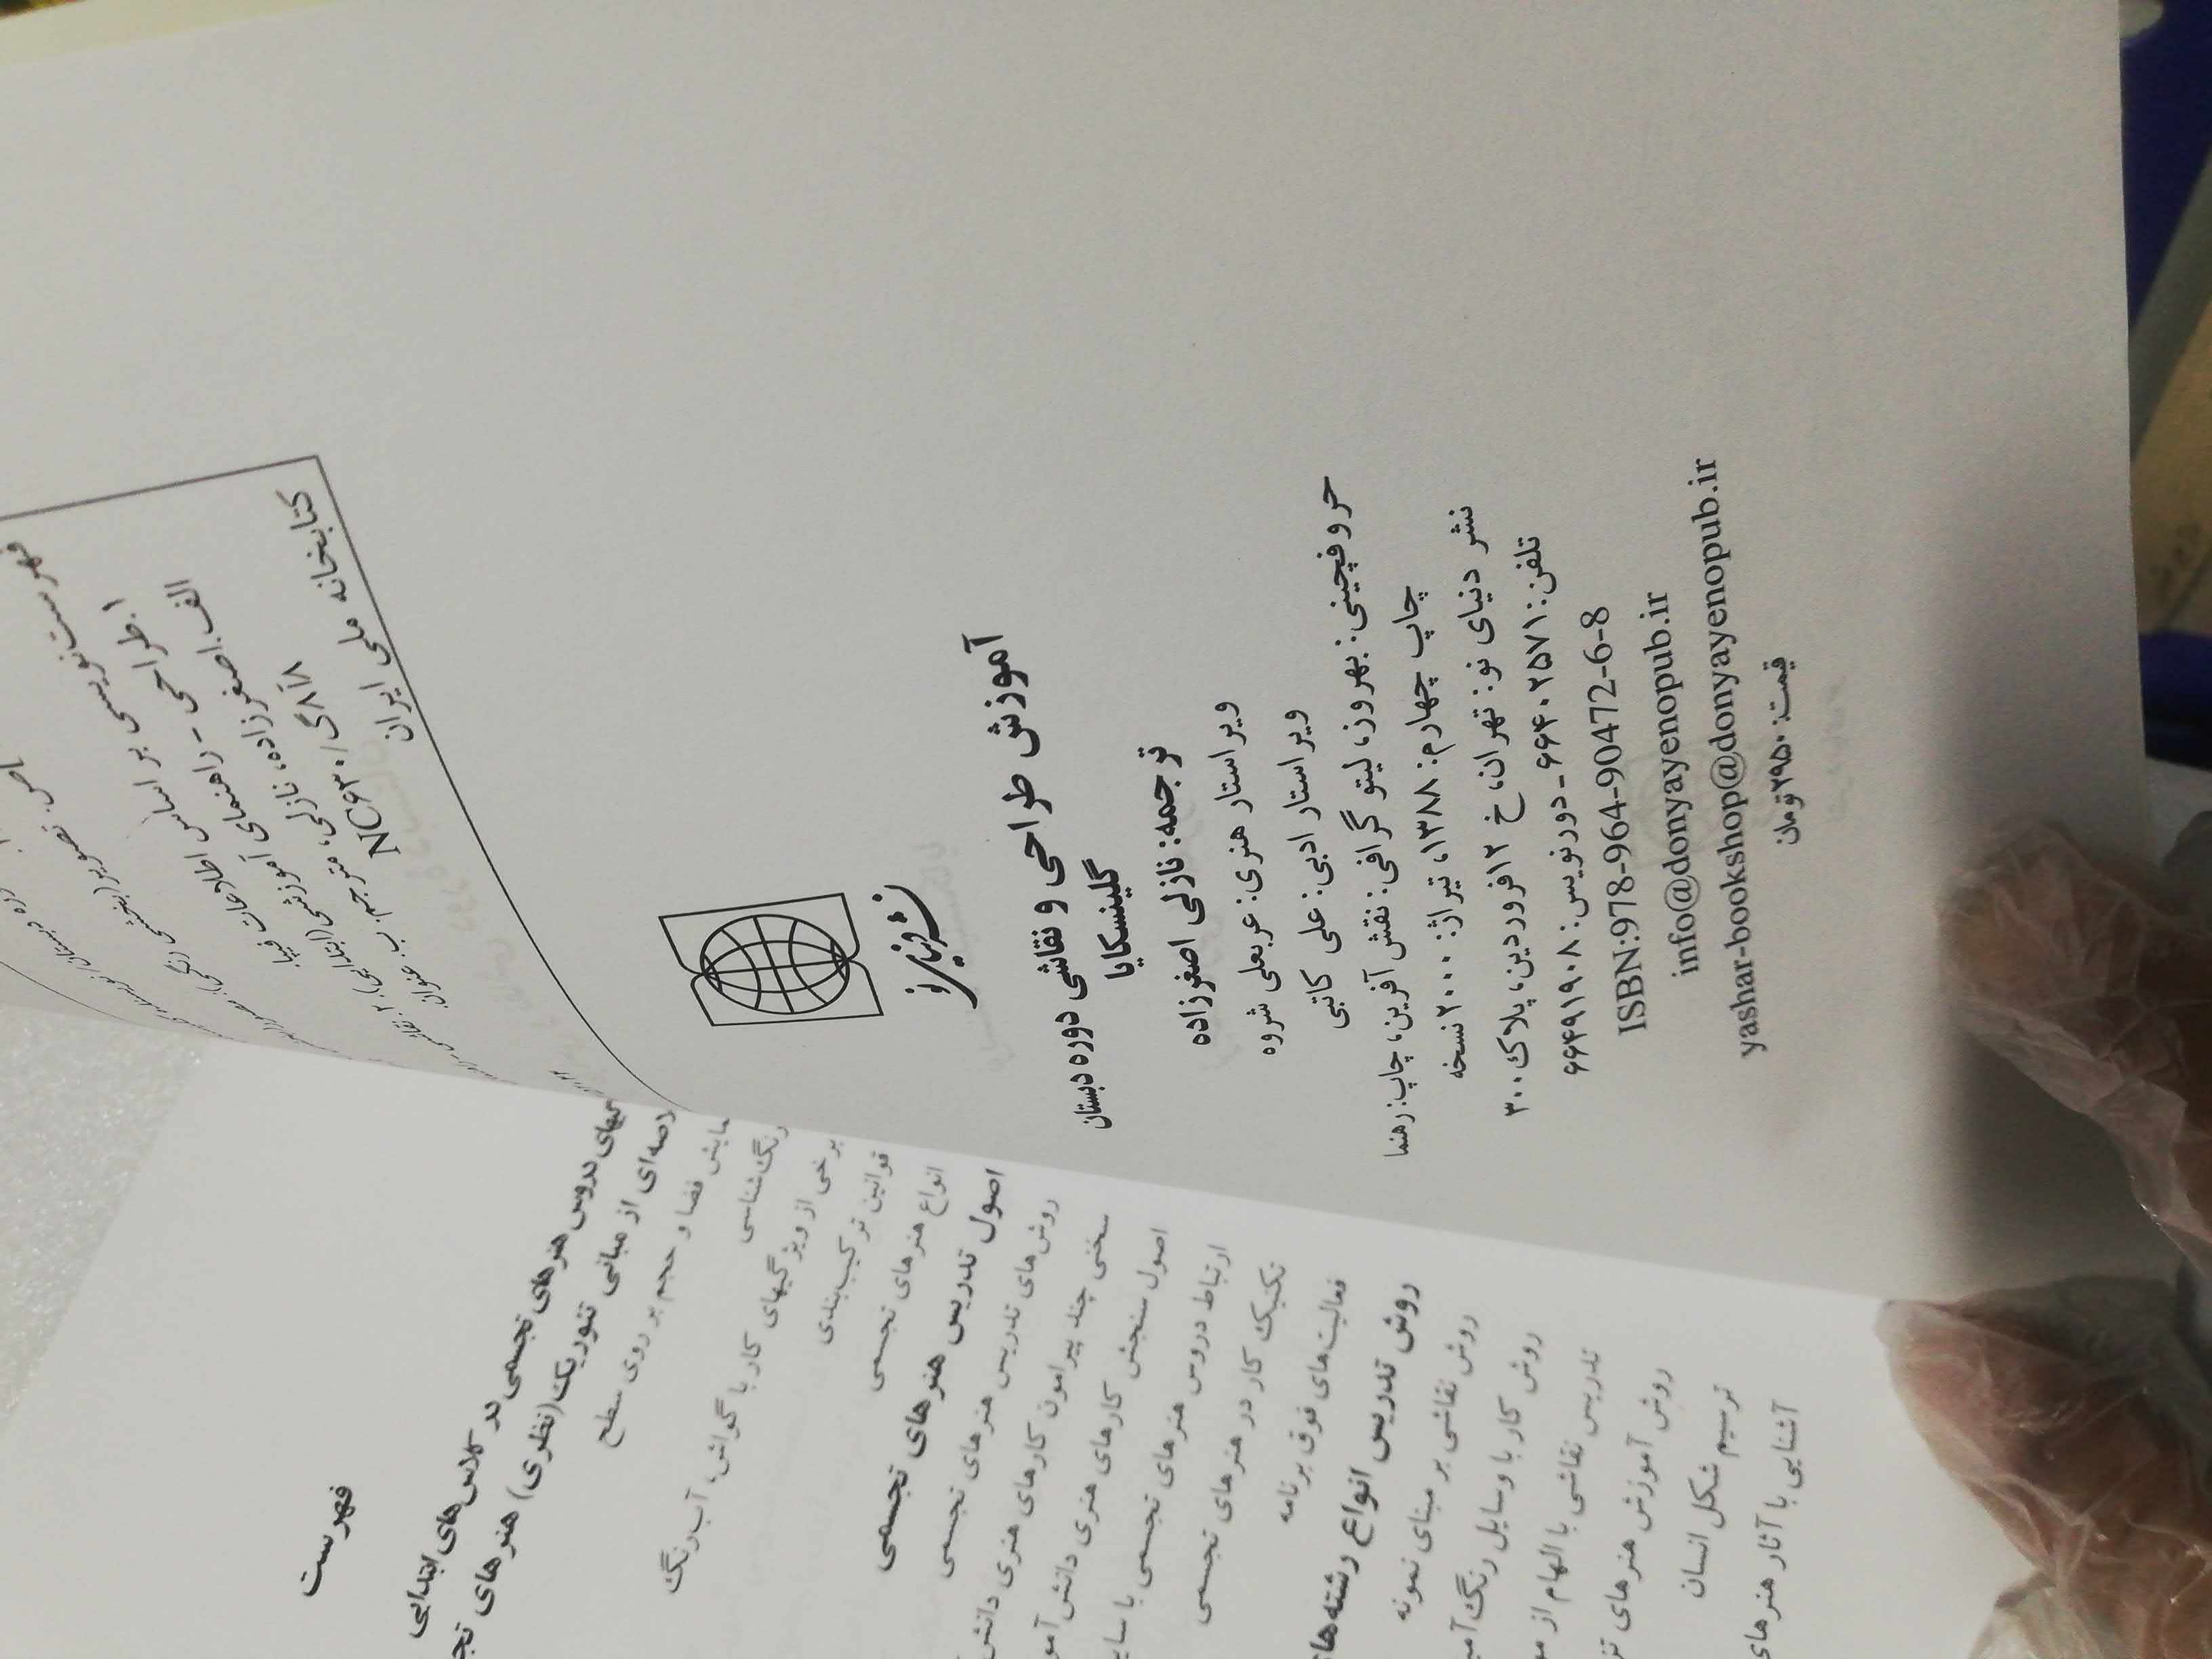 فهرست‌نویسی بر اساس اطلاعات فیپا
۱.طراحی - راهنمای آموزشی(ابتدایی).
الف.اصغرزاده، نازلی، مترجم. ب.عنوان
۸آ۸گی/NC۶۳۰
کتابخانه ملی ایران
نشر دنیای نو
آموزش طراحی و نقاشی دوره دبستان
گلینسکایا
ترجمه: نازلی اصغرزاده
ویراستار هنری: عربعلی شروه
ویراستار ادبی: علی کاتبی
حروفچینی: بهروز، لیتوگرافی: نقش آفرین، چاپ: رهنما
چاپ چهارم: ۱۳۸۸، تیراژ: ۲۰۰۰نسخه
نشر دنیای نو: تهران، خ ۱۲فروردین، پلاک ۳۰۰
تلفن: ۶۶۴۰۲۵۷۱ ـ دورنویس: ۶۶۴۹۱۹۰۸
ISBN:978-964-90472-6-8
info@donyayenopub.ir
yashar-bookshop@donyayenopub.ir
قیمت: ۲۹۵۰تومان
فهرست
هنرهای تجسمی در کلاس‌های ابتدایی
از مبانی تئوریک(نظری) هنرهای
فضا و حجم بر روی سطح
رنگ‌شناسی
برخی از ویژگیهای کار با گواش، آب‌رنگ
قوانین ترکیب‌بندی
انواع هنرهای تجسمی
اصول تدریس هنرهای تجسمی
روش‌های تدریس هنرهای تجسمی
سخنی چند پیرامون کارهای هنری
اصول سنجش کارهای هنری
ارتباط دروس هنرهای تجسمی با
تکنیک کار در هنرهای تجسمی
فعالیت‌های فوق برنامه
روش تدریس انواع رشته‌های
روش نقاشی بر مبنای نمونه
روش کار با وسایل
تدریس نقاشی با الهام از
روش آموزش هنرهای
ترسیم شکل انسان
آشنایی با آثار هنرهای